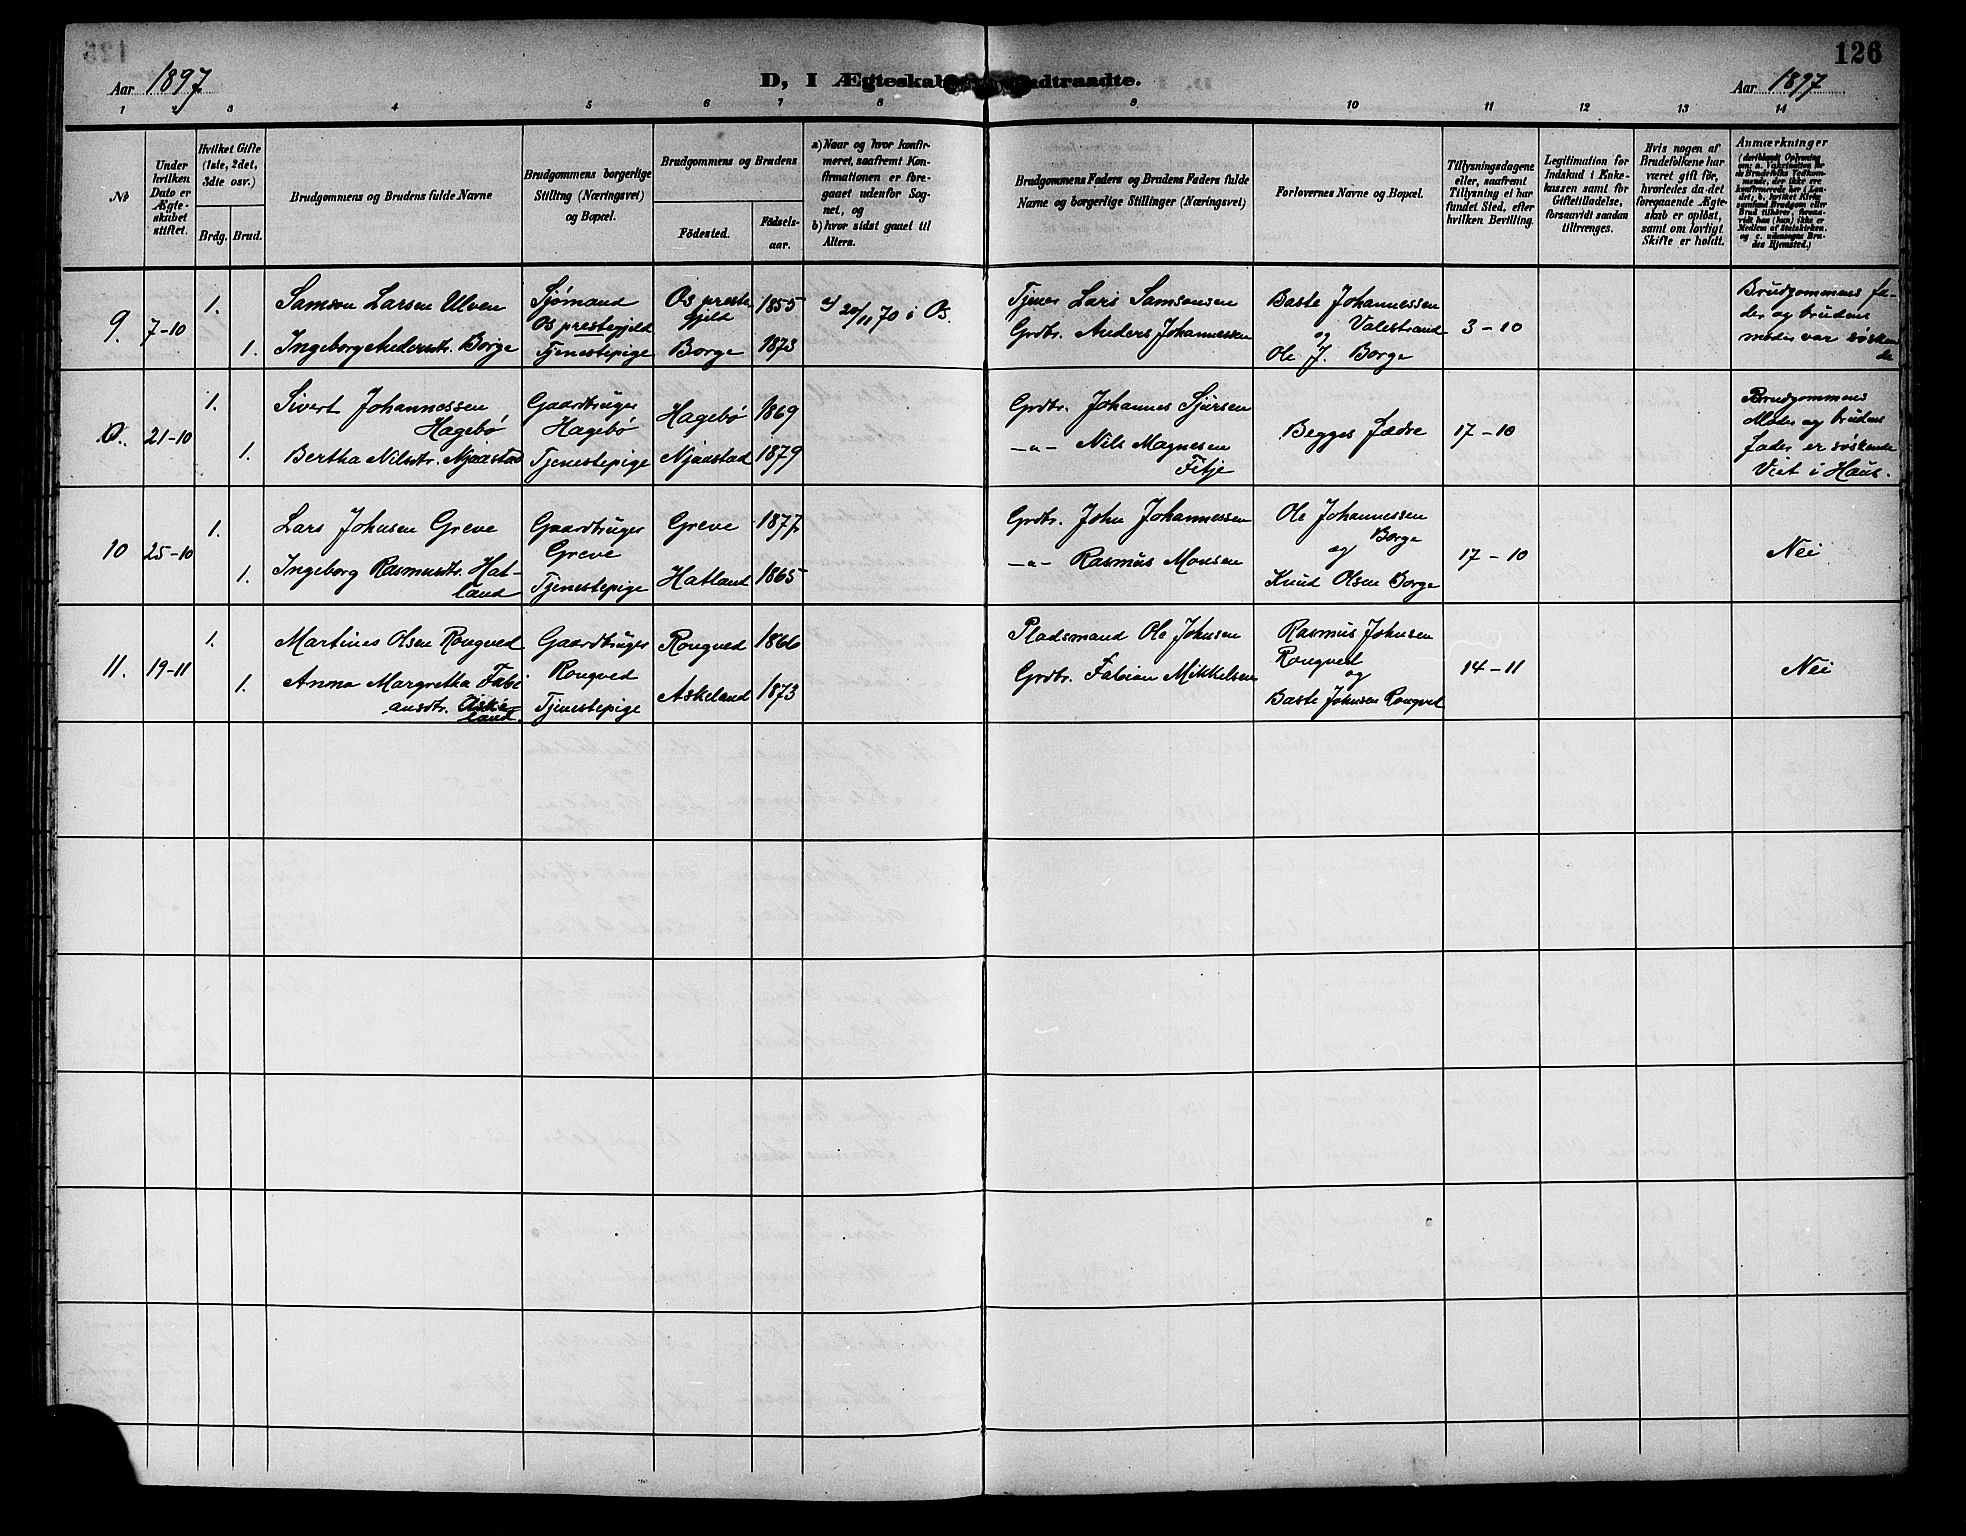 126
Aar 1897
D, I Ægteskab Indtraadte.
Aar 1897
1 2 3 4 5 6 7 8 9 10 11 12 13 14
№
Under hvilken Dato er Ægteskabet stiftet.
Hvilket Gifte (1ste, 2det, 3die osv.)
Brdg. Brud.
Brudgommens og Brudens fulde Navne
Brudgommens borgerlige Stilling (Næringsvei) og Bopæl.
Brudgommens og Brudens
Födested. Födsels-aar.
a) Naar og hvor konfirmeret, saafremt Konfirmationen er foregaaet udenfor Sognet, og
b) hvor sidst gaaet til Alters.
Brudgommens Faders og Brudens Faders fulde Navne og borgerlige Stillinger (Næringsvei)
Forlovernes Navne og Bopæl.
Tillysningsdagene eller, saafremt Tillysning ei har fundet Sted, efter hvilken Bevilling.
Legitimation for Indskud i Enkekassen samt for Giftetilladelse, forsaavidt saadan tiltrænges.
Hvis nogen af Brudefolkene har været gift för, hvorledes da det foregaaende Ægteskab er oplöst, samt om lovligt Skifte er holdt.
Anmærkninger
9. 7-10 1. Samson Larsen Ulven Sjømand Os preste- 1855 20/11 70 i Os. Tjener Lars Samsonsen Baste Johannessen Brudgommens fa-
Os prestegjeld gjeld Valestrand 3-10 der og brudens
1. Ingeborg Andersdtr. Borge Tjenestepige Borge 1873 Grdbr. Anders Johannessen og Ole J. Borge moder var søsken
de
21-10 1. Sivert Johannessen Gaardbruger Hagebø 1869 Grdbr. Johannes Sjursen Begges fædre 17-10 Brudgommens
Hagebø Hagebø Moder og brudens
1. Bertha Nilsdtr. Njaastad Tjenestepige Njaastad 1879 -"- Nils Magnesen fader er søskende
Fitje Viet i Haus.
10 25-10 1. Lars Johnsen Greve Gaardbruger Greve 1877 Grdbr. John Johannessen Ole Johannessen 17-10 Nei
Greve Borge
og
1. Ingeborg Rasmusdtr. Hat- Tjenestepige Hatland 1865 -"- Rasmus Monsen Knud Olsen Borge
land
11. 19-11 1. Martines Olsen Rongved Gaardbruger Rongved 1866 Pladsmand Ole Johnsen Rasmus Johnsen 14-11 Nei
Rongved Rongved
og
1. Anna Margretha Fabi Tjenestepige Askeland 1873 Grdbr. Fabian Mikkelsen Baste Johnsen Rongved
ansdtr. Aske-
land.